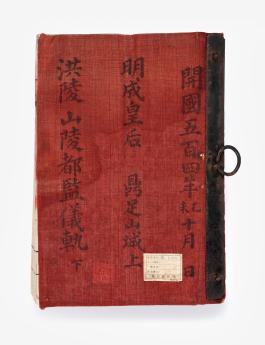 開國五百四年乙未十月 日
明成皇后 鼎足山城上
洪陵山陵都監儀軌 下